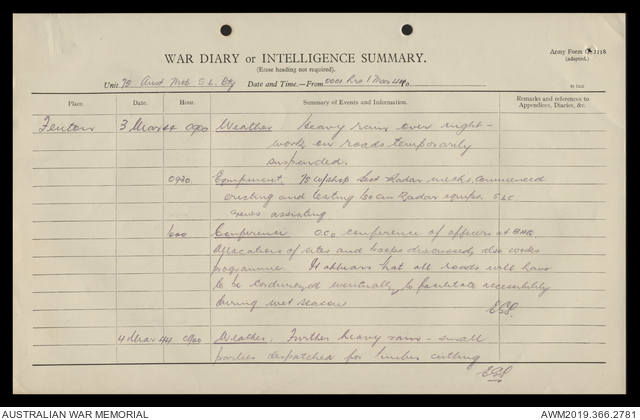 WAR DIARY or INTELLIGENCE SUMMARY.
(Erase heading not required).
Army Form C. 2118
(adapted.)
Unit 75 Aust Mob S L Bty Date and Time.—From 0001 hrs 1 Mar 44
Place. Date. Hour. Summary of Events and Information. Remarks and references to
Appendices, Diaries, &c.
Fenton 3 Mar 44 0900 Weather: heavy rain over night -
work on roads temporarily
suspended.
0930 Equipment. Sect Radar mechs. commenced
erecting and testing Radar equips. SLC
crews assisting
1600 Conference OC's conference of officers at BHQ
Allocations of sites and troops discussed, also works
programme. It appears that all roads will have
to be corduroyed eventually, to facilitate accessibility
during wet season
EGS.
4 Mar 44 0900 Weather: Further heavy rain - small
parties despatched for timber cutting
EGS
AUSTRALIAN WAR MEMORIAL
AWM2019.366.2781